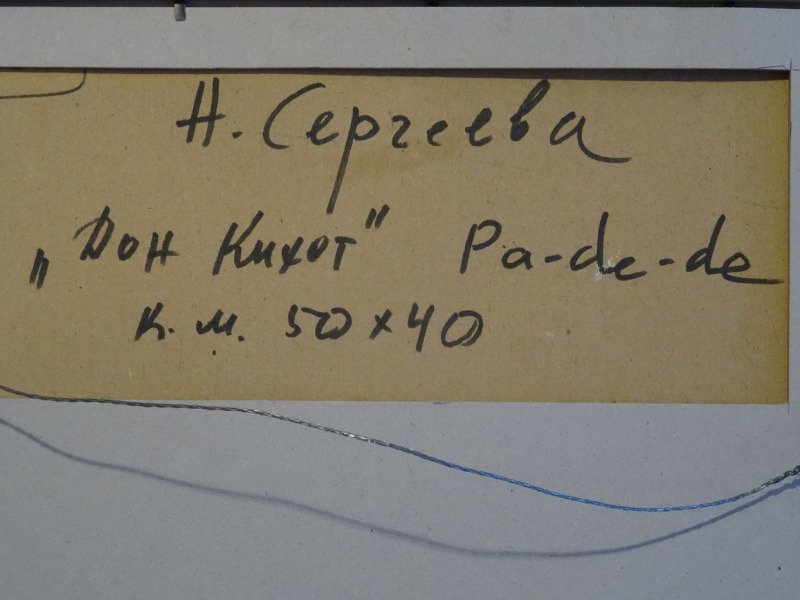 Н. Сергеева
„Дон Кихот" Pa-de-de
к. м. 50 х 40